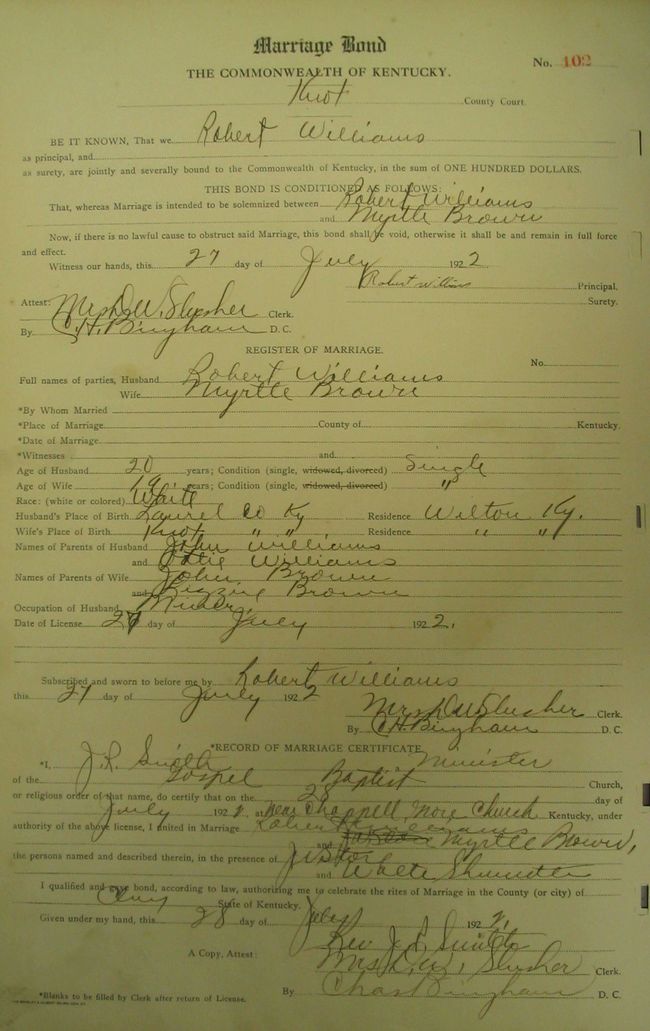 Marriage Bond
No. 102
THE COMMONWEALTH OF KENTUCKY.
Knox County Court.
BE IT KNOWN, That we Robert Williams
as principal, and
as surety, are jointly and severally bound to the Commonwealth of Kentucky, in the sum of ONE HUNDRED DOLLARS.
THIS BOND IS CONDITIONED AS FOLLOWS:
That, whereas Marriage is intended to be solemnized between Robert Williams
and Myrtle Brown
Now, if there is no lawful cause to obstruct said Marriage, this bond shall be void, otherwise it shall be and remain in full force
and effect.
Witness our hands, this 27 day of July 1922
Robert Williams Principal.
Surety.
Attest:
Mrs D. W. Slusher Clerk.
By C. H. Bingham D. C.
REGISTER OF MARRIAGE.
No.
Full names of parties, Husband Robert Williams
Wife Myrtle Brown
*By Whom Married
*Place of Marriage County of Kentucky.
*Date of Marriage
*Witnesses and
Age of Husband 20 years; Condition (single, widowed, divorced) Single
Age of Wife 19 years; Condition (single, widowed, divorced) "
Race: (white or colored) White
Husband's Place of Birth Laurel Co Ky Residence Wilton Ky.
Wife's Place of Birth Knox " " Residence " "
Names of Parents of Husband John Williams
and Williams
Names of Parents of Wife John Brown
and Lizzie Brown
Occupation of Husband Miner
Date of License 27 day of July 1922.
Subscribed and sworn to before me by Robert Williams
this 27 day of July 1922
Mrs D W Slusher Clerk.
By C H Bingham D. C.
*RECORD OF MARRIAGE CERTIFICATE
*I, J. R. Smith Minister
of the Gospel Baptist Church,
or religious order of that name, do certify that on the 28 day of
July 1922 at near Church Kentucky, under
authority of the above license, I united in Marriage Robert Williams
and Myrtle Brown,
the persons named and described therein, in the presence of
and
I qualified and gave bond, according to law, authorizing me to celebrate the rites of Marriage in the County (or city) of
State of Kentucky.
Given under my hand, this 28 day of July 1922,
Rev J. R. Smith
A Copy, Attest: Mrs D. W. Slusher Clerk.
By Chas Bingham D. C.
*Blanks to be filled by Clerk after return of License.